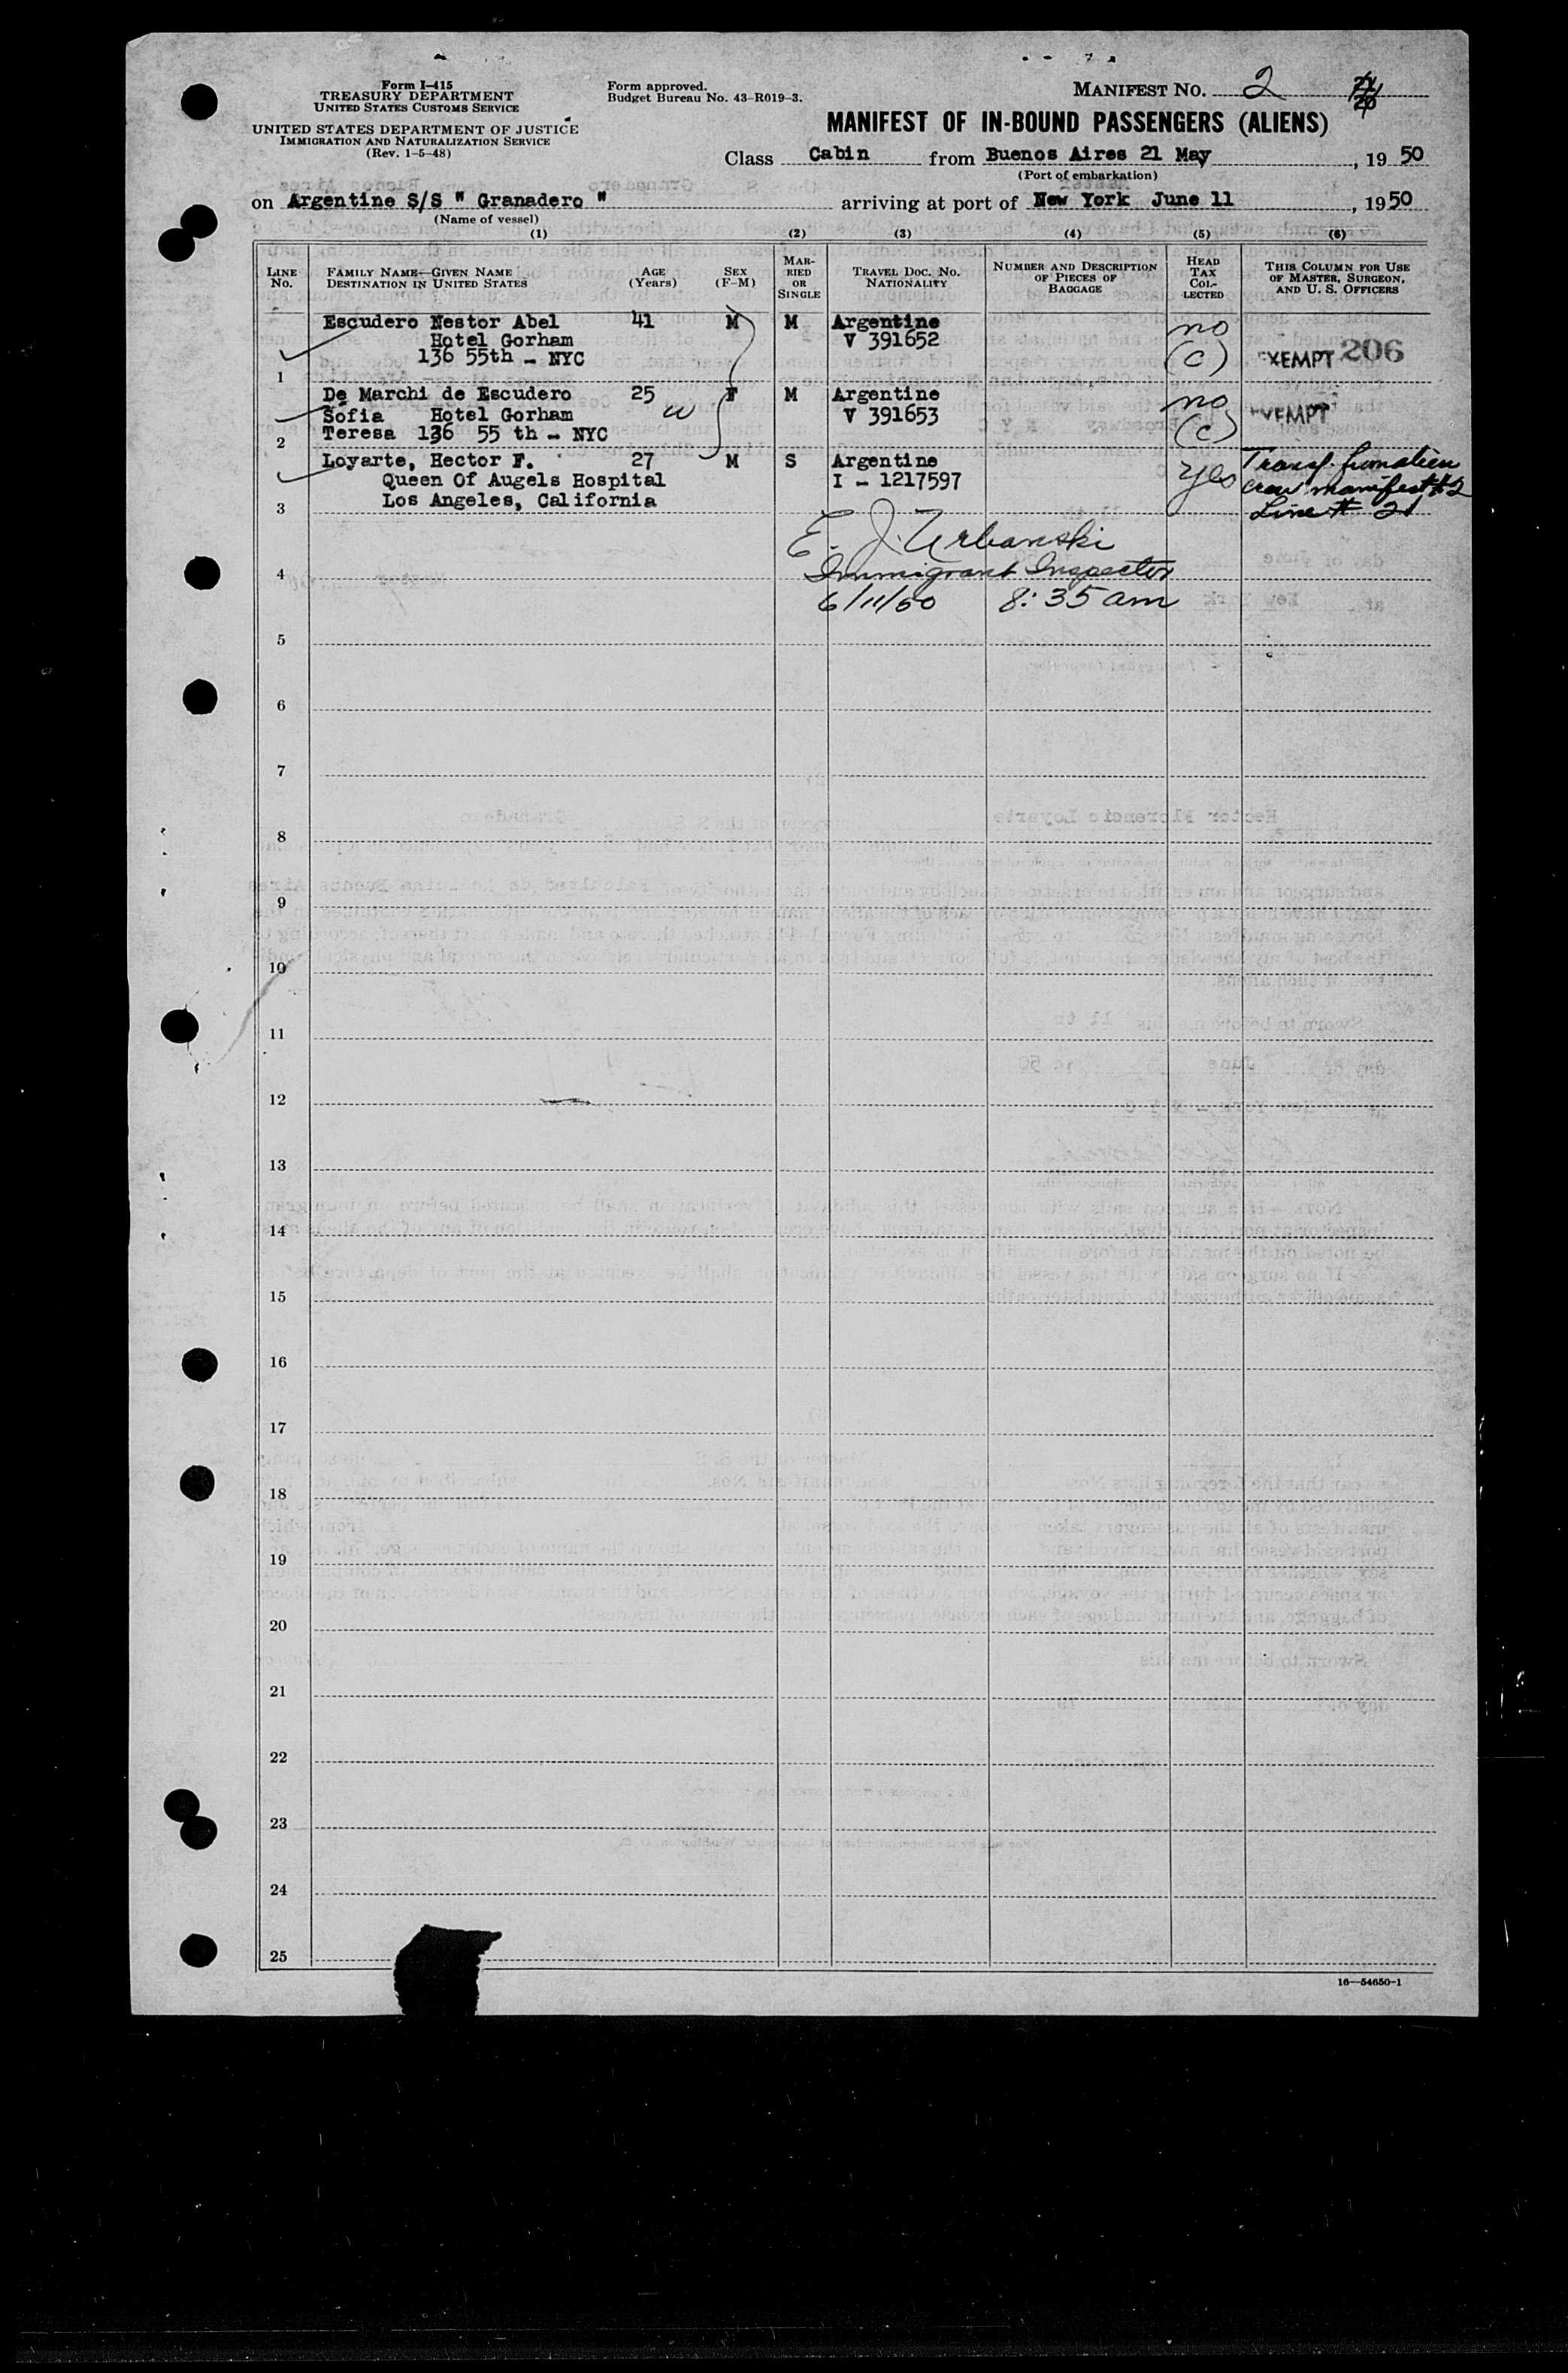 Form I-415
TREASURY DEPARTMENT
UNITED STATES CUSTOMS SERVICE
UNITED STATES DEPARTMENT OF JUSTICE
IMMIGRATION AND NATURALIZATION SERVICE
(Rev. 1-5-48)
Form approved.
Budget Bureau No. 43-R019-3.
MANIFEST NO. 2
MANIFEST OF IN-BOUND PASSENGERS (ALIENS)
Class Cabin from Buenos Aires 21 May, 19 50
(Port of embarkation)
on Argentine S/S " Granadero " arriving at port of New York June 11, 1950
(Name of vessel)
(1) (2) (3) (4) (5) (6)
LINE No.
FAMILY NAME—GIVEN NAME
DESTINATION IN UNITED STATES
AGE
(Years)
SEX
(F-M)
MAR-
RIED
OR
SINGLE
TRAVEL DOC. NO.
NATIONALITY
NUMBER AND DESCRIPTION
OF PIECES OF
BAGGAGE
HEAD
TAX
COL-
LECTED
THIS COLUMN FOR USE
OF MASTER, SURGEON,
AND U. S. OFFICERS
Escudero Nestor Abel 41 M M Argentine no
Hotel Gorham V 391652 (C) EXEMPT 206
136 55th - NYC
1
De Marchi de Escudero 25 F M Argentine no
Sofia Hotel Gorham w V 391653 (C) EXEMPT
Teresa 136 55 th - NYC
2
Loyarte, Hector F. 27 M S Argentine yes
Queen Of Augels Hospital I - 1217597
Los Angeles, California
Transf. from alien
crew manifest #2
Line # 21
3
E. J. Urbanski
Immigrant Inspector
4
6/11/50 8:35 am
5
6
7
8
9
10
11
12
13
14
15
16
17
18
19
20
21
22
23
24
25
16—54650-1